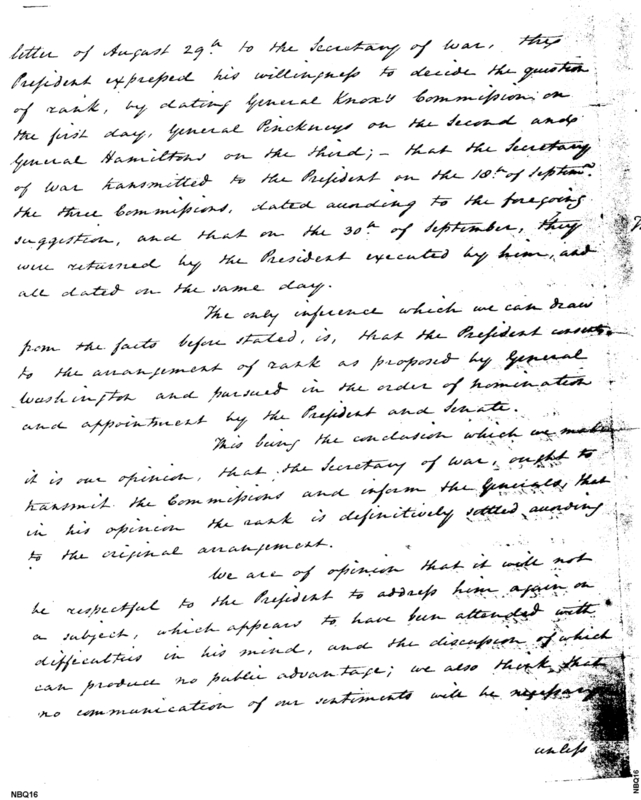 letter of August 29.th to the Secretary of War, the
President expressed his willingness to decide the question
of rank, by dating General Knox's Commission, on
the first day, General Pinckneys on the second and
General Hamiltons on the third; – that the Secretary
of War transmitted to the President on the 18.th of Septem.r
the three Commissions, dated according to the foregoing
suggestion, and that on the 30th of September, they
were returned by the President executed by him, and
all dated on the same day.
The only inference which we can draw
from the facts before stated, is, that the President consents
to the arrangement of rank as proposed by General
Washington and pursued in the order of nomination
and appointment by the President and Senate.
This being the conclusion which we make
it is our opinion, that the Secretary of War, ought to
transmit the Commissions and inform the Generals, that
in his opinion the rank is definitively settled according
to the original arrangement.
We are of opinion that it will not
be respectful to the President to address him again on
a subject, which appears to have been attended with
difficulties in his mind, and the discussion of which
can produce no public advantage; we also think that
no communication of our sentiments will be necessary
unless
NBQ16
NBQ16